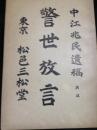 中江兆民遺稿
警世放言
東京 松邑三松堂